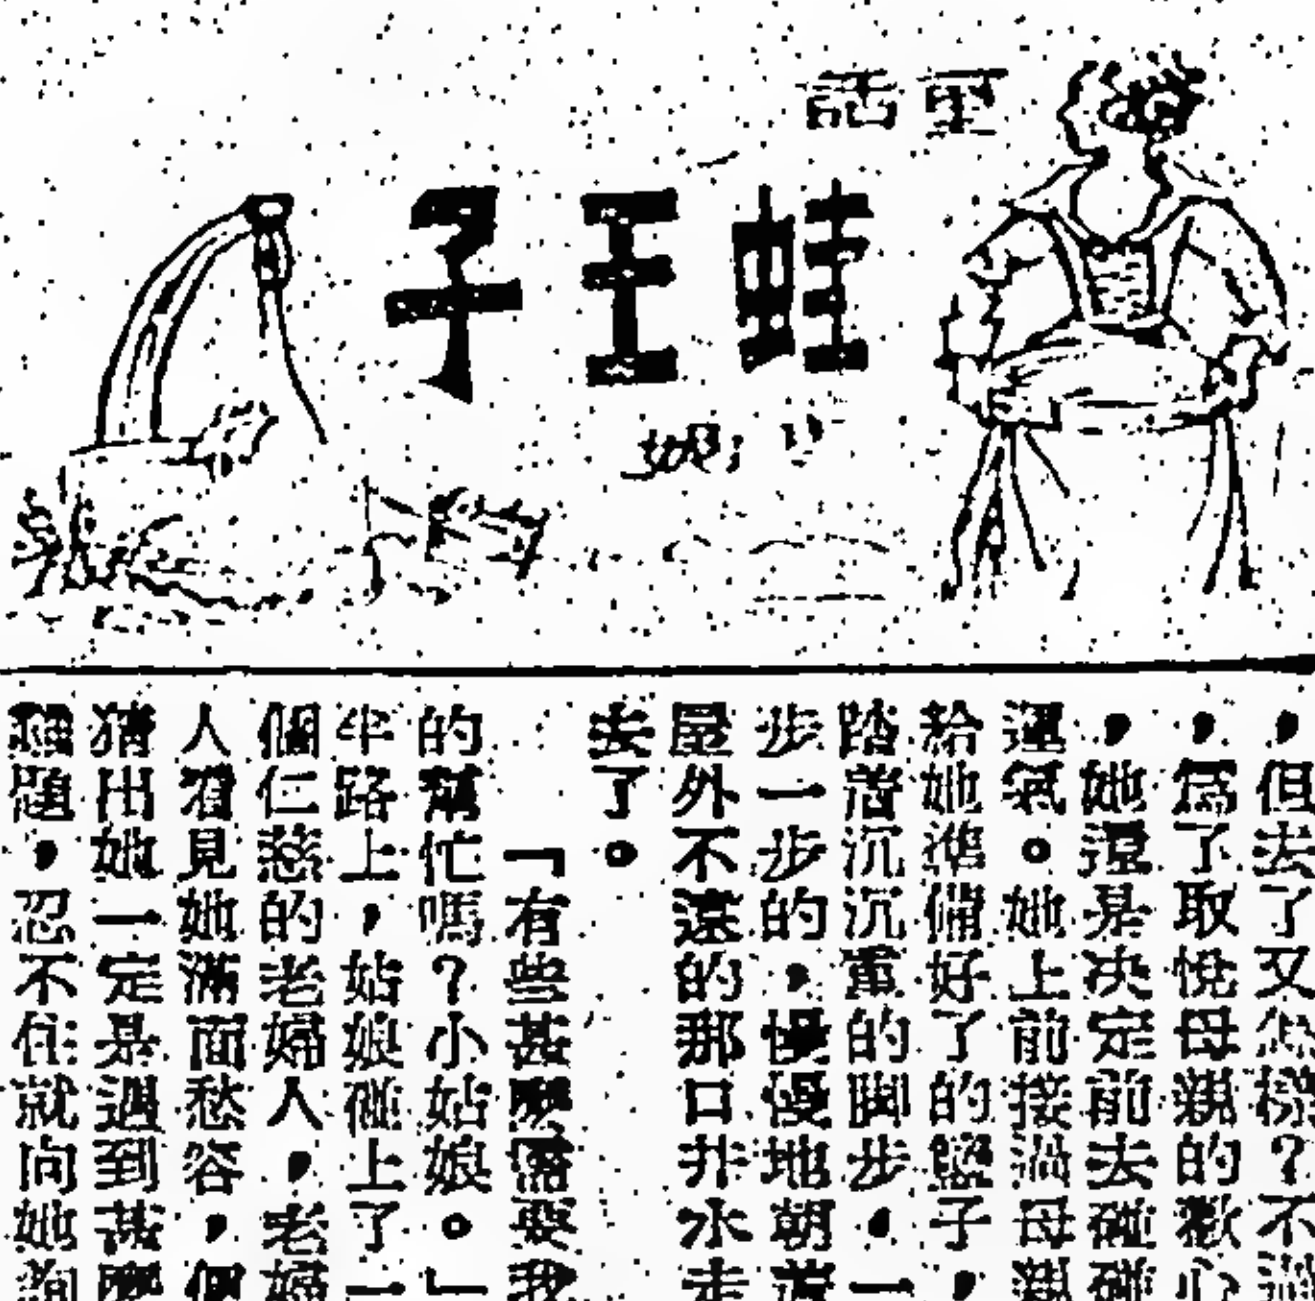 童話
蛙王子
，但去了又怎樣？不過
，為了取悅母親的歡心
，她還是決定前去碰碰
運氣。她上前接過母親
給她準備好了的籃子，
踏着沉沉重的脚步，一
步一步的，慢慢地朝着
屋外不遠的那口井水走
去了。
「有些甚麼需要我
的幫忙嗎？小姑娘。」
半路上，姑娘碰上了一
個仁慈的老婦人，老婦
人看見她滿面愁容，便
猜出她一定是遇到甚麼
難題，忍不住就向她詢